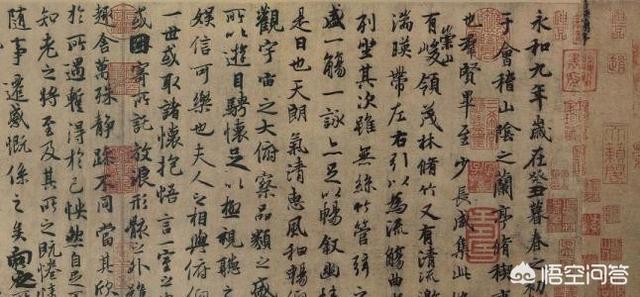 永和九年歲在癸丑暮春之初
于會稽山陰之蘭亭脩稧
也羣賢畢至少長咸集此
有崇山峻領茂林脩竹又有清流激
湍暎帶左右引以為流觴曲
列坐其次雖無絲竹管弦之
盛一觴一詠亦足以暢叙幽
是日也天朗氣清惠風和暢
觀宇宙之大俯察品類之盛
所以遊目騁懷足以極視聽之
娛信可樂也夫人之相與俯仰
一世或取諸懷抱悟言一室之
或因寄所託放浪形骸之外雖
趣舍萬殊靜躁不同當其欣
於所遇暫得於己怏然自足
知老之將至及其所之既惓情
隨事遷感慨係之矣向之
悟空问答